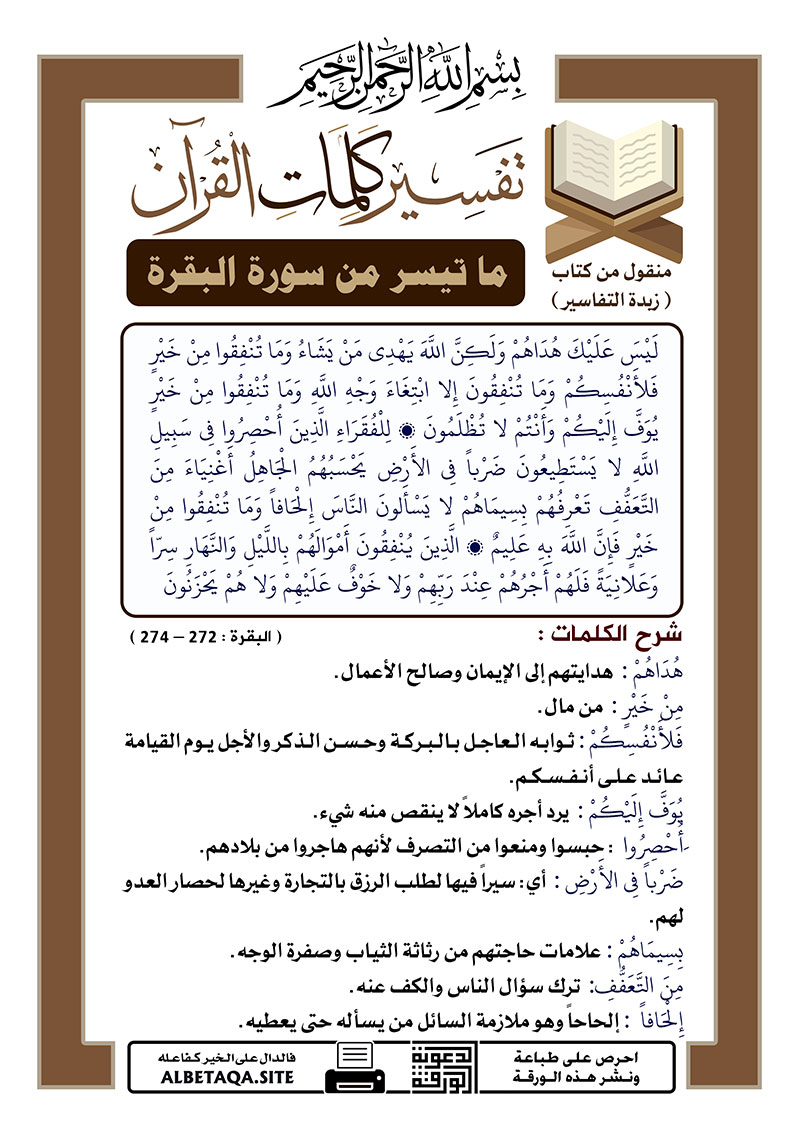 بِسْمِ اللَّهِ الرَّحْمَنِ الرَّحِيمِ
تَفْسِير كَلِمَاتِ الْقُرْآن
منقول من كتاب
( زبدة التفاسير )
ما تيسر من سورة البقرة
لَيْسَ عَلَيْكَ هُدَاهُمْ وَلَكِنَّ اللَّهَ يَهْدِى مَنْ يَشَاءُ وَمَا تُنْفِقُوا مِنْ خَيْرٍ
فَلأَنْفُسِكُمْ وَمَا تُنْفِقُونَ إِلا ابْتِغَاءَ وَجْهِ اللَّهِ وَمَا تُنْفِقُوا مِنْ خَيْرٍ
يُوَفَّ إِلَيْكُمْ وَأَنْتُمْ لا تُظْلَمُونَ ۞ لِلْفُقَرَاءِ الَّذِينَ أُحْصِرُوا فِى سَبِيلِ
اللَّهِ لا يَسْتَطِيعُونَ ضَرْباً فِى الأَرْضِ يَحْسَبُهُمُ الْجَاهِلُ أَغْنِيَاءَ مِنَ
التَّعَفُّفِ تَعْرِفُهُمْ بِسِيمَاهُمْ لا يَسْأَلونَ النَّاسَ إِلْحَافاً وَمَا تُنْفِقُوا مِنْ
خَيْرٍ فَإِنَّ اللَّهَ بِهِ عَلِيمٌ ۞ الَّذِينَ يُنْفِقُونَ أَمْوَالَهُمْ بِاللَّيْلِ وَالنَّهَارِ سِرّاً
وَعَلانِيَةً فَلَهُمْ أَجْرُهُمْ عِنْدَ رَبِّهِمْ وَلا خَوْفٌ عَلَيْهِمْ وَلا هُمْ يَحْزَنُونَ
شرح الكلمات :
( البقرة : 272 – 274 )
هُدَاهُمْ : هدايتهم إلى الإيمان وصالح الأعمال.
مِنْ خَيْرٍ : من مال.
فَلأَنْفُسِكُمْ : ثوابه العاجل بالبركة وحسن الذكر والأجل يوم القيامة
عائد على أنفسكم.
يُوَفَّ إِلَيْكُمْ : يرد أجره كاملاً لا ينقص منه شيء.
َأُحْصِرُوا : حبسوا ومنعوا من التصرف لأنهم هاجروا من بلادهم.
ضَرْباً فِى الأَرْضِ : أي: سيراً فيها لطلب الرزق بالتجارة وغيرها لحصار العدو
لهم.
بِسِيمَاهُمْ : علامات حاجتهم من رثاثة الثياب وصفرة الوجه.
مِنَ التَّعَفُّفِ: ترك سؤال الناس والكف عنه.
إِلْحَافاً : إلحاحاً وهو ملازمة السائل من يسأله حتى يعطيه.
احرص على طباعة
ونشر هذه الورقة
الدعوية
الورقة
فالدال على الخير كفاعله
ALBETAQA.SITE